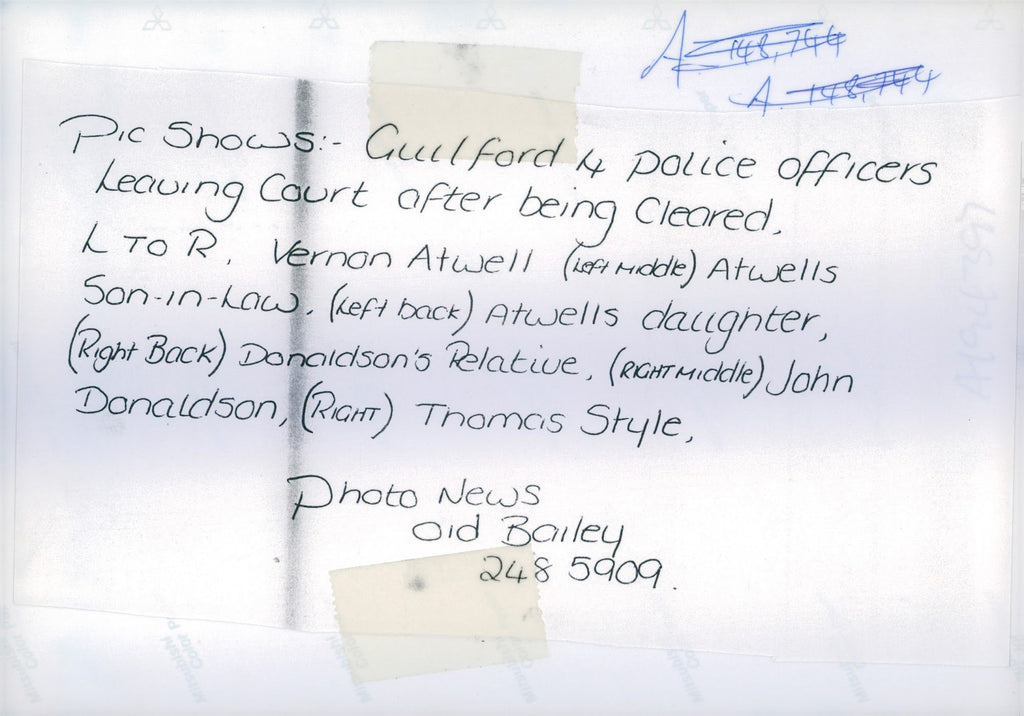 A 148,744
A 148,744
Pic Shows:- Guilford 4 police officers
Leaving Court after being Cleared.
L To R. Vernon Atwell (Left Middle) Atwells
Son-in-Law. (Left back) Atwells daughter,
(Right Back) Donaldson's Relative, (RIGHT Middle) John
Donaldson, (RIGHT) Thomas Style,
Photo News
Old Bailey
248 5909.